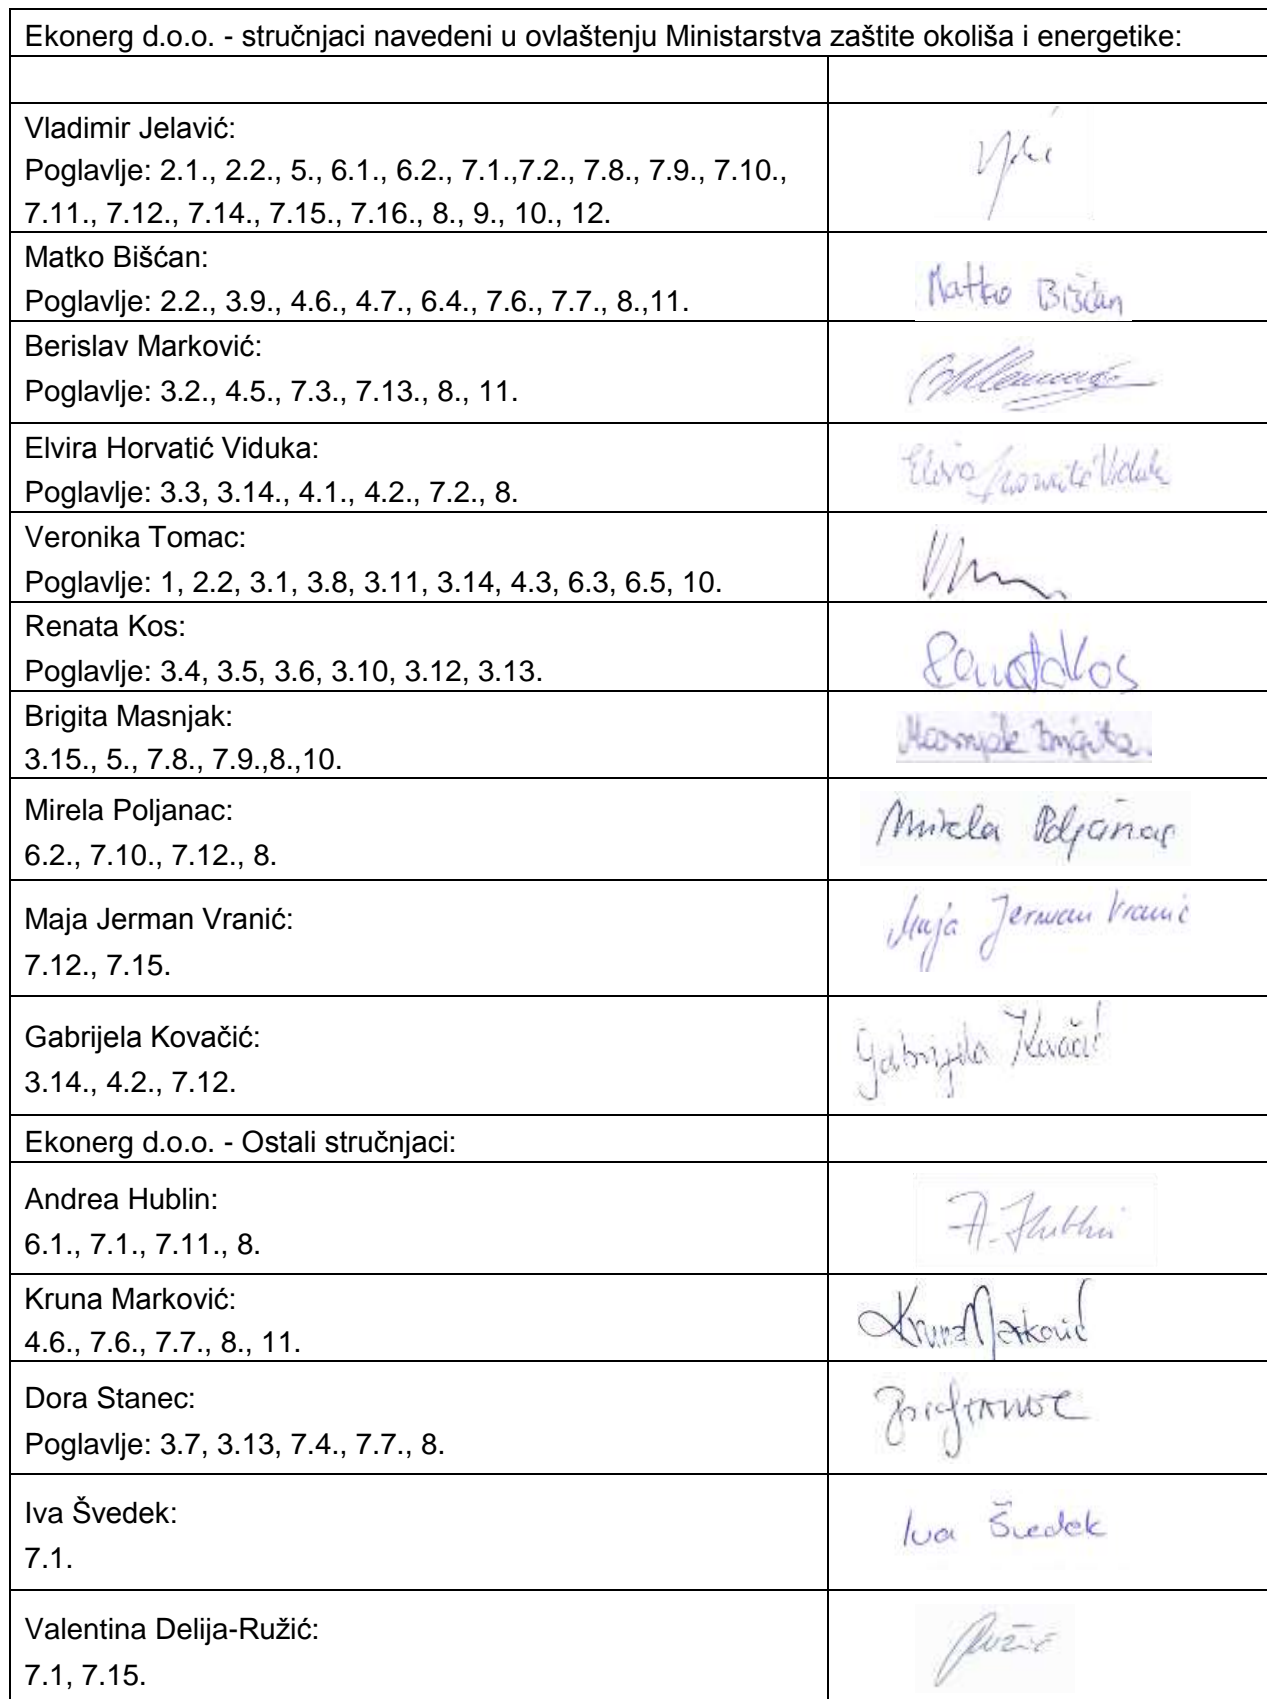 Ekonerg d.o.o. - stručnjaci navedeni u ovlaštenju Ministarstva zaštite okoliša i energetike:
Vladimir Jelavić:
Poglavlje: 2.1., 2.2., 5., 6.1., 6.2., 7.1.,7.2., 7.8., 7.9., 7.10.,
7.11., 7.12., 7.14., 7.15., 7.16., 8., 9., 10., 12.
Matko Bišćan:
Poglavlje: 2.2., 3.9., 4.6., 4.7., 6.4., 7.6., 7.7., 8.,11.
Matko Bišćan
Berislav Marković:
Poglavlje: 3.2., 4.5., 7.3., 7.13., 8., 11.
Elvira Horvatić Viduka:
Poglavlje: 3.3, 3.14., 4.1., 4.2., 7.2., 8.
Elvira Horvatić Viduka
Veronika Tomac:
Poglavlje: 1, 2.2, 3.1, 3.8, 3.11, 3.14, 4.3, 6.3, 6.5, 10.
Renata Kos:
Poglavlje: 3.4, 3.5, 3.6, 3.10, 3.12, 3.13.
Renata Kos
Brigita Masnjak:
3.15., 5., 7.8., 7.9.,8.,10.
Masnjak Brigita
Mirela Poljanac:
6.2., 7.10., 7.12., 8.
Mirela Poljanac
Maja Jerman Vranić:
7.12., 7.15.
Maja Jerman Vranić
Gabrijela Kovačić:
3.14., 4.2., 7.12.
Gabrijela Kovačić
Ekonerg d.o.o. - Ostali stručnjaci:
Andrea Hublin:
6.1., 7.1., 7.11., 8.
A. Hublin
Kruna Marković:
4.6., 7.6., 7.7., 8., 11.
Kruna Marković
Dora Stanec:
Poglavlje: 3.7, 3.13, 7.4., 7.7., 8.
Iva Švedek:
7.1.
Iva Švedek
Valentina Delija-Ružić:
7.1, 7.15.
Ružić